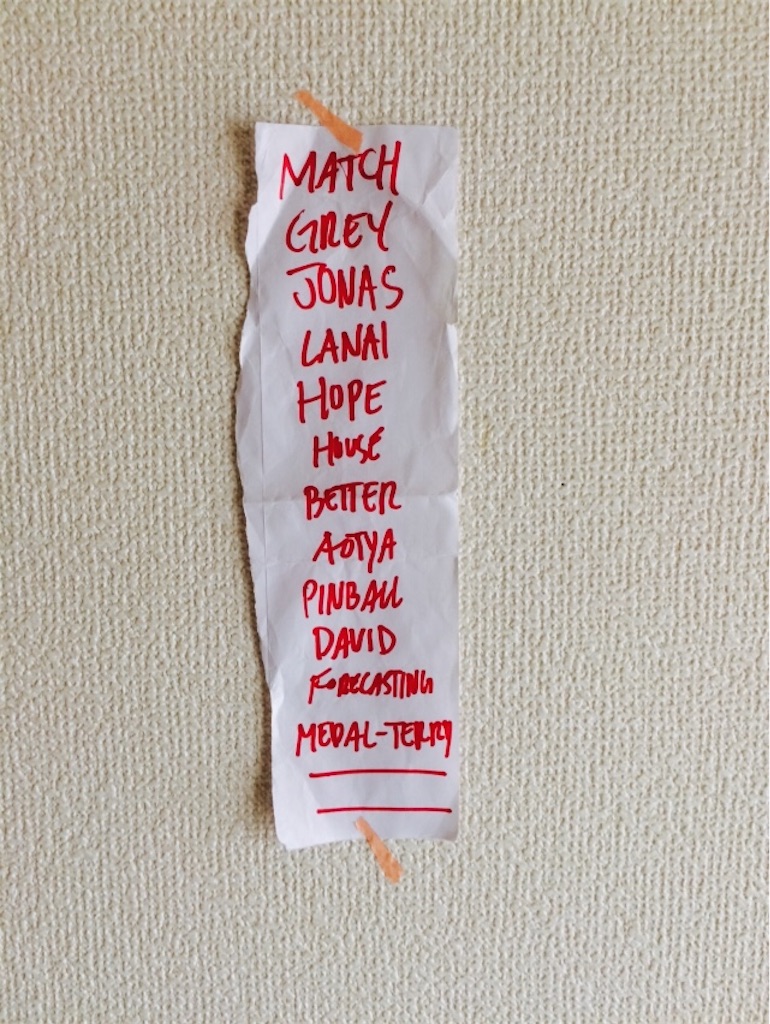 MATCH
GREY
JONAS
LANAI
HOPE
HOUSE
BETTER
AOTYA
PINBALL
DAVID
FORECASTING
MEDAL-TERRY